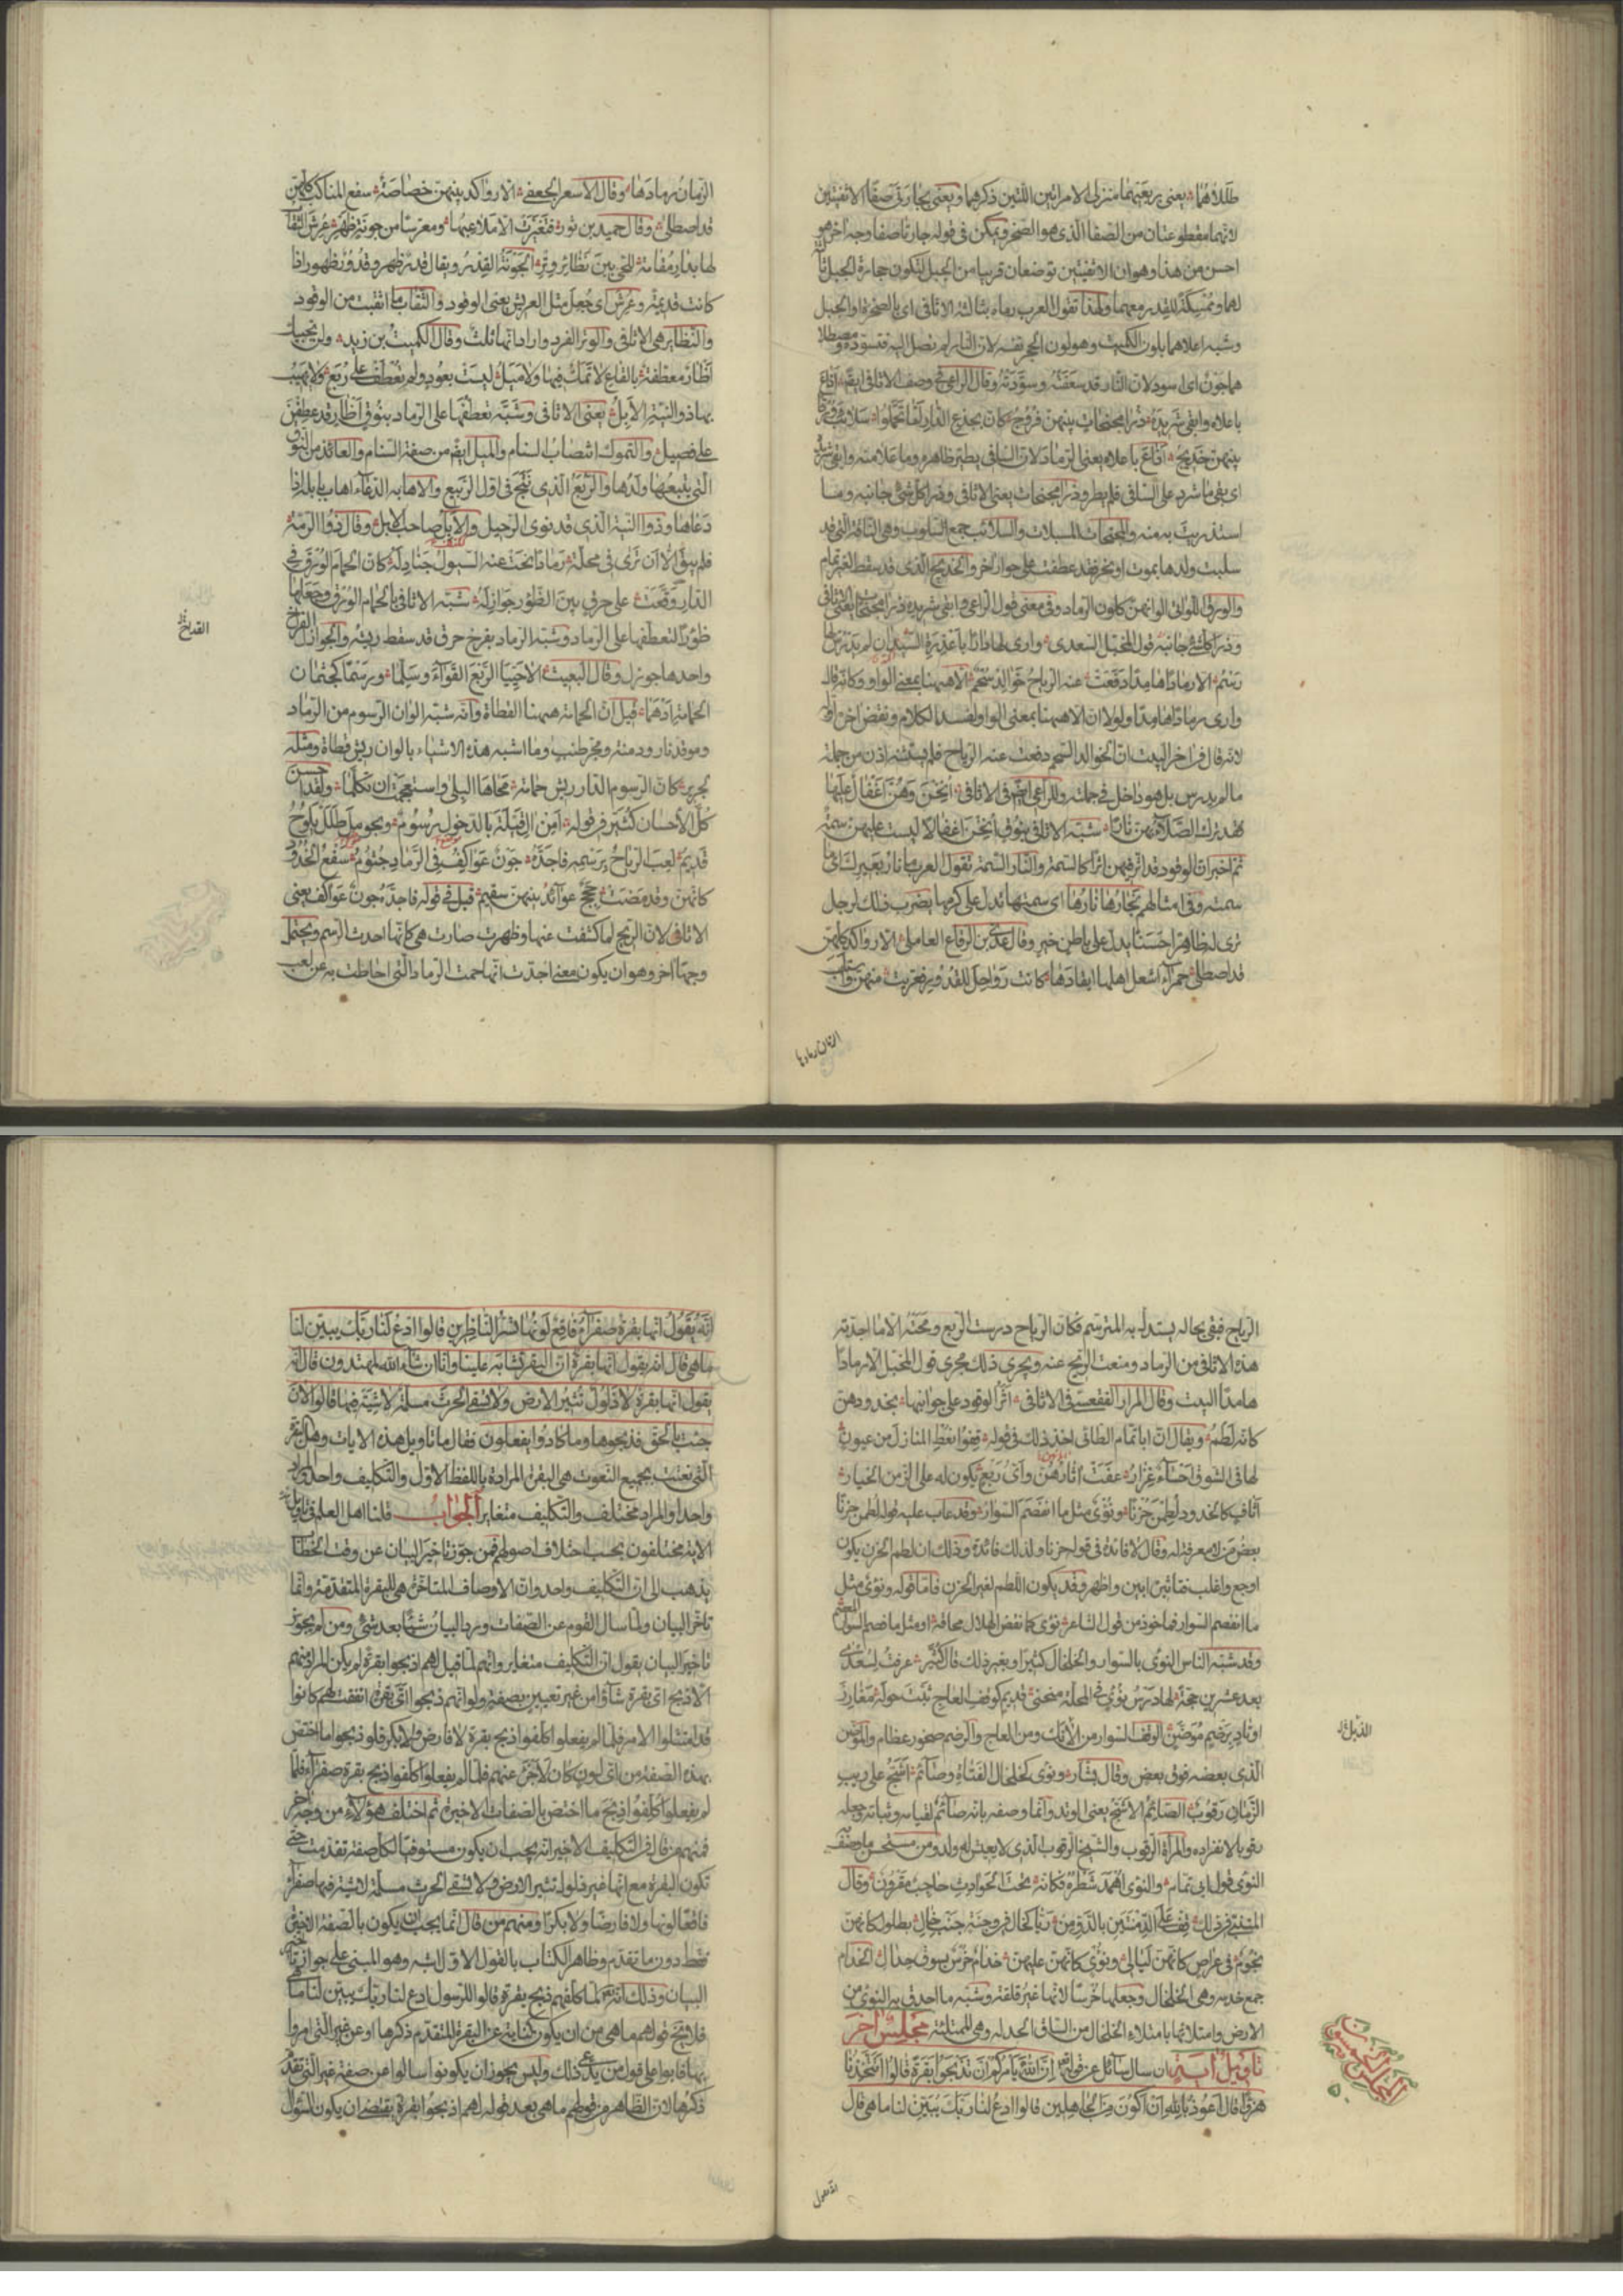 طللاهما يعنى بربعيهما منزلى الامراتين اللتين ذكرهما ويعنى بجارتى صفا الاثفيتين
لانهما مقطوعتان من الصفا الذى هو الصخر ويمكن فى قوله جارتا صفا وجه اخر هو
احسن من هذا وهو ان الاثفيتين توضعان قريبا من الجبل لتكون حجارة الجبل ثالثة
لهما وممسكة للقدر معهما ولهذا تقول العرب رماه بثالثة الاثافى اى بالصخرة او الجبل
وشبه اعلاهما بلون الكميت وهو لون الحجر نفسه لان النار لم تصل اليه فتسوده ومصطلا
هما جون اى اسود لان النار قد سفعته وسودته وقال الراعى فى وصف الاثافى ايضا اذاع
باعلاه وابقى شريده ذرا مجنحات بينهن فروج كان بجذع الدار لما تحملوا سلائب ورقا
بينهن خديج اذاع باعلاه يعنى الرماد لان السافى يطير ظاهره وما علا منه وابقى شريده
اى بقى ما شرد على السافى فلم يطر وذرا مجنحات يعنى الاثافى وذرا كل شئ جانبه وما
استذريت به منه والمجنحات المميلات والسلائب جمع السلوب وهى الناقة التى قد
سلبت ولدها بموت او نحر فقد عطفت على حوار اخر والخديج الذى قد سقط لغير تمام
والورق اللواتى الوانهن كالون الرماد وفى معنى قول الراعى وابقى شريده ذرا مجنحات يعنى الاثافى
وذرا كل شئ جانبه قول المخبل السعدى وارى لها دارا باغدرة السيدان لم يدرس لها
رسم الا رمادا هامدا دفعت عنه الرياح خوالد سحم الا ههنا بمعنى الواو وكانه قال
وارى رمادا هامدا ولولا ان الا ههنا بمعنى الواو لفسد الكلام ونقض اخره اوله
لانه قال فى اخر البيت ان الخوالد السحم دفعت عنه الرياح فلم يستثنه اذن من جملة
ما لم يدرس بل هو داخل فى جملته وللراعى ايضا فى الاثافى انخن وهن اغفال عليها
فقد ترك الصلاء بهن نارا شبه الاثافى بنوق انخن اغفالا ليست عليهن سمة
ثم اخبر ان الوقود قد اثر فيهن اثرا كالسمة والنار السمة تقول العرب ما نار بعيرك اى ما
سمته وفى امثالهم نجارها نارها اى سمتها تدل على كرمها يضرب ذلك لرجل
ترى له ظاهرا حسنا يدل على باطن خير وقال عدى بن الرقاع العاملى الا رواكد كلهن
قد اصطلى حمراء اشعل اهلها ايقادها كانت رواحل للقدور فعريت منهن واستلب
الزمان رمادها
الزمان رمادها وقال الاسعر الجعفى الا رواكد بينهن خصاصة سفع المناكب كلهن
قد اصطلى وقال حميد بن ثور فتغيرت الا ملاعبها ومعرسا من جونة ظهر عرش الثقاب
لها بدار مقامة للحى بين نظائر وتر الجونة القدر ويقال قدر ظهر وقدور ظهور اذا
كانت قديمة وعرش اى جعل مثل العريش يعنى الوقود والثقاب ما اثقبت من الوقود
والنظاير هى الاثافى والوتر الفرد واراد انها ثلث وقال الكميت بن زيد ولن تحييك
اظار معطفة بالقاع لا تمك فيها ولا ميل ليست بعود ولم تعطف على ربع ولا يهيب
بها ذو النية الابل يعنى الاثافى وشبه تعطفها على الرماد بنوق اظار قد عطفن
على فصيل والتموك انتصاب السنام والميل ايضا من صفة السنام والعائذ من النوق
التى يتبعها ولدها والربع الذى نتج فى اول الربيع والاهابه الدعاء اهاب بابله اذا
دعاها وذوا النية الذى قد نوى الرحيل والابل صاحب الابل وقال ذو الرمة
فلم يبق الا ان ترى فى محلة رمادا نحت عنه السيول جنادله كان الحمام الورق فى
الدار وقعت على خرق بين الظؤر جوازله شبه الاثافى بالحمام الورق وجعلها
ظؤرا لتعطفها على الرماد وشبه الرماد بفرخ خرق قد سقط ريشه والجوازل الفراخ
القديم
واحدها جوزل وقال البعيث الا حييا الربع القواء وسلما ورسما كجثمان
الحمامة ادهما قيل ان الحمامة ههنا القطاة وانه شبه الوان الرسوم من الرماد
وموقد نار ودمنة ومجر طنب وما اشبه هذه الاشياء بالوان ريش قطاة ومثله
لجرير كان الرسوم الدار ريش حمامة محاها البلى واستعجمت ان تكلما ولقد احسن
كل الاحسان كثير فى قوله امن ال قيلة بالدخول رسوم وبحومل طلل يلوح
قديم لعب الرياح برسمه فاجده جون عواكف فى الرماد جثوم سفع الخدود
كانهن وقد مضت حجج عوائد بينهن سقيم قيل فى قوله فاجده جون عواكف يعنى
الاثافى لان الريح لما كشفت عنها وظهرت صارت هى كانها احدث الرسم ويحتمل
وجها اخر وهو ان يكون معنى اجدت انها حمت الرماد التى احاطت به عن لعب
الرياح فبقى بحاله يستدل به المترسم فكان الرياح درست الربع ومحته الا ما اجدته
هذه الاثافى من الرماد ومنعت الريح عنه ويجرى ذلك مجرى قول المخبل الا رمادا
هامدا البيت وقال المرار الفقعسى فى الاثافى اثر الوقود على جوانبها بخدودهن
كانه لطم ويقال ان ابا تمام الطائى اخذ ذلك فى قوله قفوا نعط المنازل من عيون
لها فى الشوق احساء غزار عفت اثارهن واى ربع يكون له على الزمن الخيار
اثاف كالخدود لطمن حزنا ونؤى مثل ما انفصم السوار وقد عاب عليه قوله لطمن حزنا
بعض من لا معرفة له وقال لا فائدة فى قوله حزنا ولذلك فائدة وذلك ان لطم الحزن يكون
اوجع وابلغ فتاثيره ابين واظهر وقد يكون اللطم لغير الحزن فاما قوله ونؤى مثل
ما انفصم السوار فماخوذ من قول الشاعر نؤى كما نقض الهلال محاقه او مثل ما فصم السوار المعصم
وقد شبه الناس النؤى بالسوار والخلخال كثيرا وبغير ذلك قال كثير عرفت لسعدى
بعد عشرين حجة لها درس نؤى فى المحلة منحنى قديم كوقف العاج ثبت حوله مغارز
اوتاد برضيم موضن الوقف السوار من الذبل ومن العاج والرضم صخور عظام والموضن
الذبل
الذى بعضه فوق بعض وقال بشار ونؤى كخلخال الفتاة وصائم اشج على ريب
الزمان رقوب الصائم الاشج يعنى الوتد وانما وصفه بانه صائم لقيامه وثباته وجعله
رقوبا لانفراده والمراة الرقوب والشيخ الرقوب الذى لا يعيش له ولد ومن مستحسن ما وصف به
النؤى قول ابى تمام والنؤى اهمد شطره فكانه تحت الحوادث حاجب مقرون وقال
المتنبى فى ذلك قف على الدمنتين بالدو من ريا كخال فى وجنة جنب خال بطلول كانهن
نجوم فى عراص كانهن ليالى ونؤى كانهن عليهن خدام خرس بسوق خدال الخدام
جمع خدمه وهى الخلخال وجعلها خرسا لانها غير قلقة وشبه ما احدق به النؤى من
الارض وامتلائها بامتلاء الخلخال من الساق الخدله وهى الممتلئة مجلس اخر
تاويل اية ان سال سائل عن قوله تعالى ان الله يامركم ان تذبحوا بقرة قالوا اتتخذنا
هزوا قال اعوذ بالله ان اكون من الجاهلين قالوا ادع لنا ربك يبين لنا ما هى قال
انه يقول
انه يقول انها بقرة صفراء فاقع لونها تسر الناظرين قالوا ادع لنا ربك يبين لنا
ما هى قال انه يقول انها بقرة ان البقر تشابه علينا وانا ان شاء الله لمهتدون قال انه
يقول انها بقرة لا ذلول تثير الارض ولا تسقى الحرث مسلمة لا شية فيها قالوا الآن
جئت بالحق فذبحوها وما كادوا يفعلون فقال ما تاويل هذه الايات وهل البقرة
التى نعتت بجميع النعوت هى البقرة المرادة باللفظ الاول والتكليف واحد والمراد
واحد او المراد مختلف والتكليف متغاير الجواب قلنا اهل العلم فى تاويل هذه
الاية مختلفون بحسب اختلاف اصولهم فمن جوز تاخير البيان عن وقت الخطاب
يذهب الى ان التكليف واحد وان الاوصاف المتاخرة هى للبقرة المتقدمة وانما
تاخر البيان ولما سال القوم عن الصفات ورد البيان شيئا بعد شئ ومن لم يجوز
تاخير البيان يقول ان التكليف متغاير وانهم لما قيل لهم اذبحوا بقرة لم يكن المراد منهم
الا ذبح اى بقرة شاؤا من غير تعيين بصفة ولو انهم ذبحوا اى بقرة اتفقت لهم كانوا
قد امتثلوا الامر فلما لم يفعلوا كلفوا ذبح بقرة لا فارض ولا بكر فلو ذبحوا ما اختص
بهذه الصفة من اى لون كان لاجزى عنهم فلما لم يفعلوا كلفوا ذبح بقرة صفراء فلما
لم يفعلوا كلفوا ذبح ما اختص بالصفات الاخيرة ثم اختلف هؤلاء من وجه اخر
فمنهم من قال فى التكليف الاخير انه يجب ان يكون مستوفيا لكل صفة تقدمت حتى
تكون البقرة مع انها غير ذلول تثير الارض ولا تسقى الحرث مسلمة لا شية فيها صفراء
فاقعا لونها ولا فارضا ولا بكرا ومنهم من قال انما يجب ان يكون بالصفة الاخيرة
فقط دون ما تقدم وظاهر الكتاب بالقول الاول اشبه وهو المبنى على جواز تاخير
البيان وذلك انه تعالى لما كلفهم ذبح بقرة قالوا للرسول ادع لنا ربك يبين لنا ما هى
فلا يخ قولهم ما هى من ان يكون كناية عن البقرة المتقدم ذكرها او عن غير التى امروا
بها قابوا على قول من يدعى ذلك وليس يجوز ان يكونوا سالوا عن صفة غير التى تقدم
ذكرها لان الظاهر من قولهم ما هى بعد قوله لهم اذبحوا بقرة يقتضى ان يكون السؤال